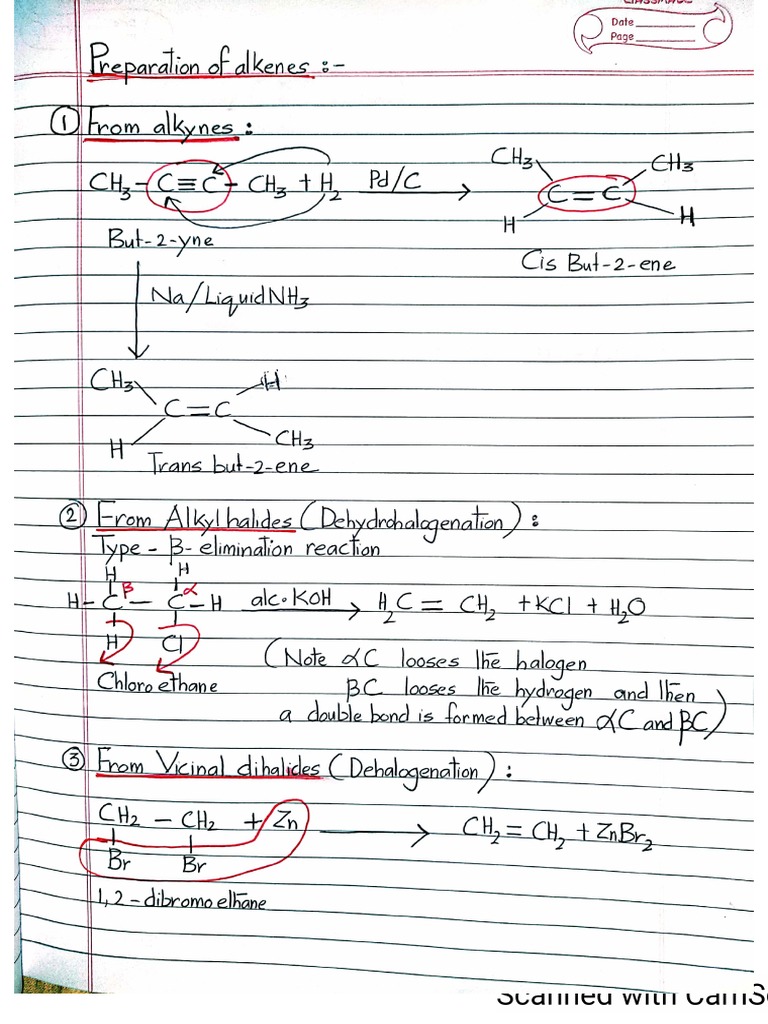 Date
Page
Preparation of alkenes :-
① From alkynes :
CH₃ - C ≡ C - CH₃ + H₂ Pd/C → CH₃ CH₃
C = C
H H
But-2-yne
Cis But-2-ene
Na/Liquid NH₃
CH₃ H
C = C
H CH₃
Trans but-2-ene
② From Alkyl halides (Dehydrohalogenation) :
Type - β- elimination reaction
H H
β α
H - C - C - H alc. KOH → H₂C = CH₂ + KCl + H₂O
H Cl
(Note αC looses the halogen
Chloro ethane
βC looses the hydrogen and then
a double bond is formed between αC and βC)
③ From Vicinal dihalides (Dehalogenation) :
CH₂ - CH₂ + Zn → CH₂ = CH₂ + ZnBr₂
Br Br
1,2-dibromo ethane
Scanned with CamS